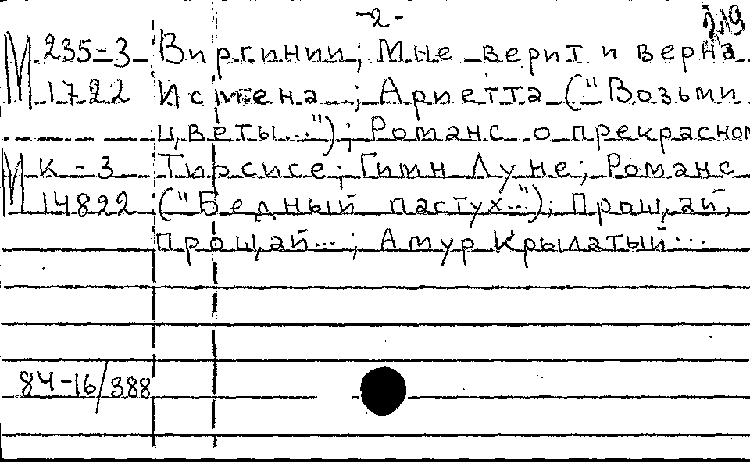 -2-
219
М 235-3 Виргинии; Мне верит и верна
1722 Исмена...; Ариетта ("Возьми
цветы..."); Романс о прекрасном
М К-3 Тирсисе; Гимн Луне; Романс
14822 ("Бедный пастух..."); Прощай,
прощай...; Амур Крылатый...
84-16/388